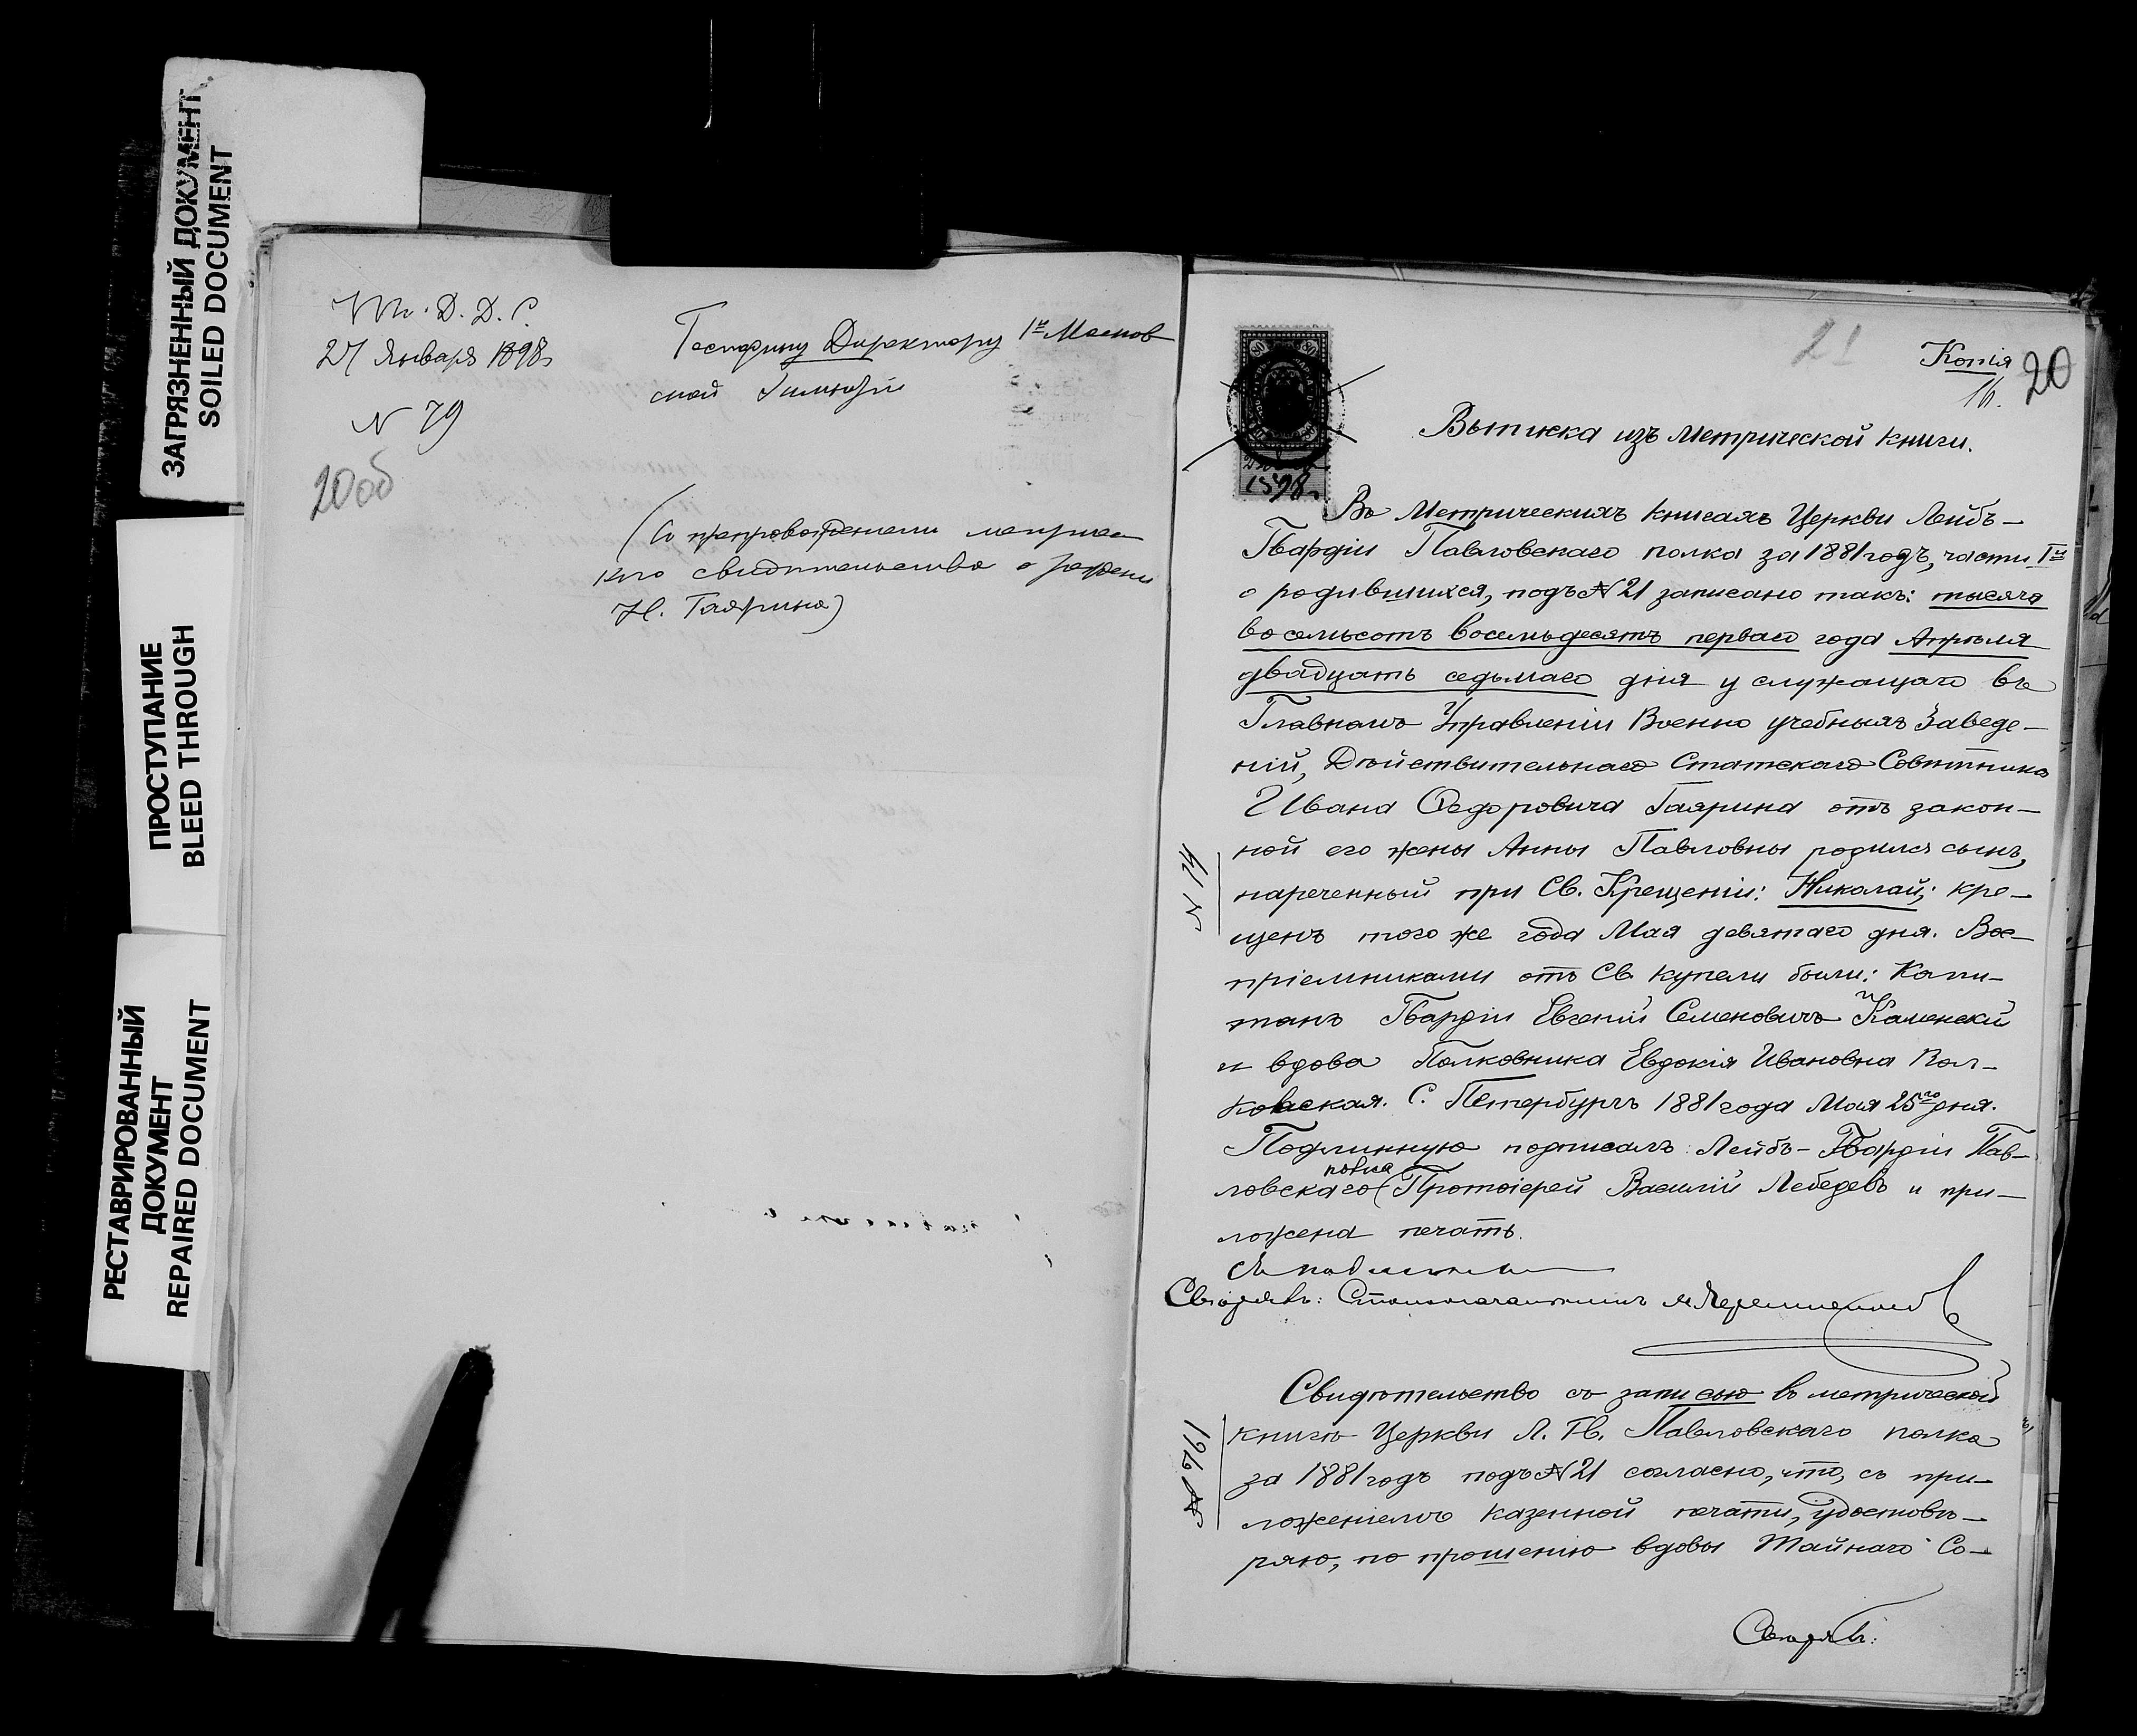 ЗАГРЯЗНЕННЫЙ ДОКУМЕНТ
SOILED DOCUMENT
ПРОСТУПАНИЕ
BLEED THROUGH
РЕСТАВРИРОВАННЫЙ
ДОКУМЕНТ
REPAIRED DOCUMENT
М. Д. Д. С.
27 Января 1898
N 79
20об
Господину Директору 1й Москов
ской Гимназіи
(Съ препровожденіем метричес
каго свидѣтельства о рожденіи
Н. Гаярина)
21
Копія
20
80 80
1898 г.
Выписка изъ Метрической книги.
Въ Метрическихъ книгахъ Церкви Лейбъ-
Гвардіи Павловскаго полка за 1881 годъ, части Iй
о родившихся, подъ № 21 записано такъ: тысяча
восемьсотъ восемьдесятъ перваго года Апрѣля
двадцать седьмаго дня у служащаго въ
Главномъ Управленіи Военно учебныхъ Заведе-
ній, Дѣйствительнаго Статскаго Совѣтника
Ивана Ѳедоровича Гаярина отъ закон-
ной его жены Анны Павловны родился сынъ,
нареченный при Св. Крещеніи: Николай; кре-
щенъ того же года Мая девятаго дня. Вос-
пріемниками отъ Св. купели были: Капи-
танъ Гвардіи Евгеній Семеновичъ Каменскій
и вдова Полковника Евдокія Ивановна Кол-
ковская. С. Петербургъ 1881 года Мая 25го дня.
Подлинную подписалъ: Лейбъ-Гвардіи Пав-
ловскаго полка Протоіерей Василій Лебедевъ и при-
ложена печать.
N 14
Съ подлиннымъ
Свѣрялъ: Столоначальникъ
Свидѣтельство съ записью въ метрической
книгѣ Церкви Л. Гв. Павловскаго полка
за 1881 годъ подъ № 21 согласно, что, съ при-
ложеніемъ казенной печати, удостовѣ-
ряю, по прошенію вдовы Тайнаго Со-
№ 761
Свѣрялъ: